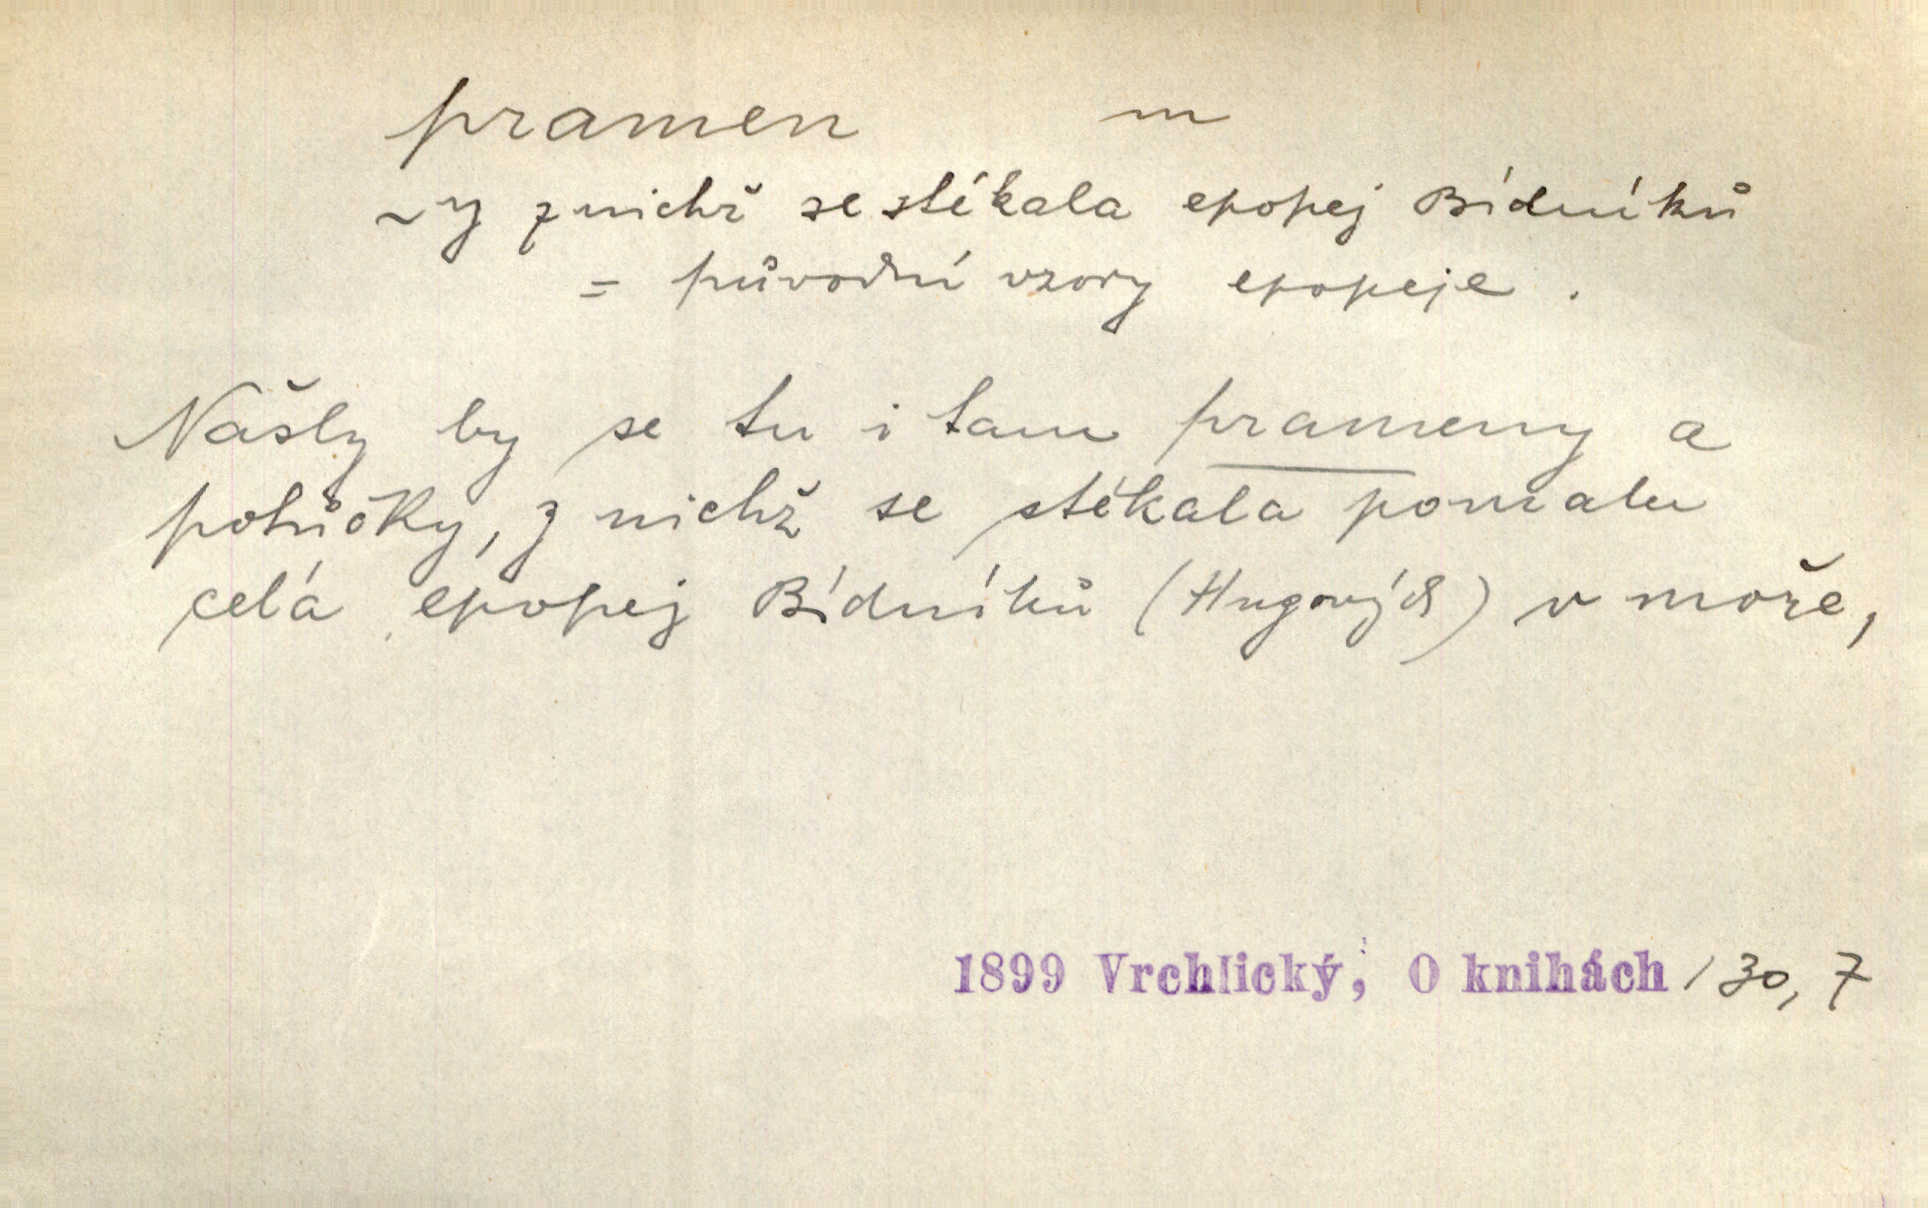 pramen m
~y z nichž se stékala epopej Bídníků
= původní vzory epopeje.
Našly by se tu i tam prameny a
potůčky, z nichž se stékala pomalu
celá epopej Bídníků (Hugových) v moře,
1899 Vrchlický, O knihách 130, 7